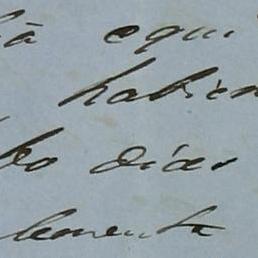 há equi
habien
bo dias
lemente